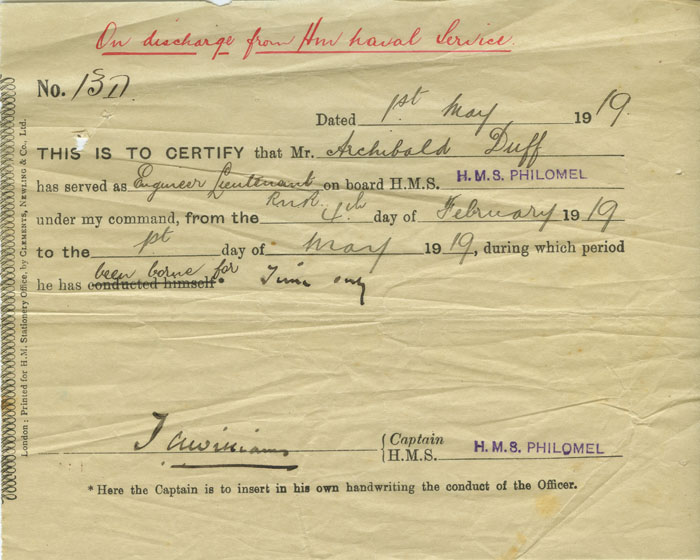 On discharge from HM Naval Service
No. 137.
Dated 1st May 1919.
THIS IS TO CERTIFY that Mr. Archibald Duff
has served as Engineer Lieutenant on board H.M.S. H.M.S. PHILOMEL
RNR
under my command, from the 4th day of February 1919
to the 1st day of May 1919, during which period
been borne for
he has conducted himself* Time only
{Captain
H.M.S. H.M.S. PHILOMEL
* Here the Captain is to insert in his own handwriting the conduct of the Officer.
London: Printed for H.M. Stationery Office, by CLEMENTS, NEWLING & Co., Ltd.